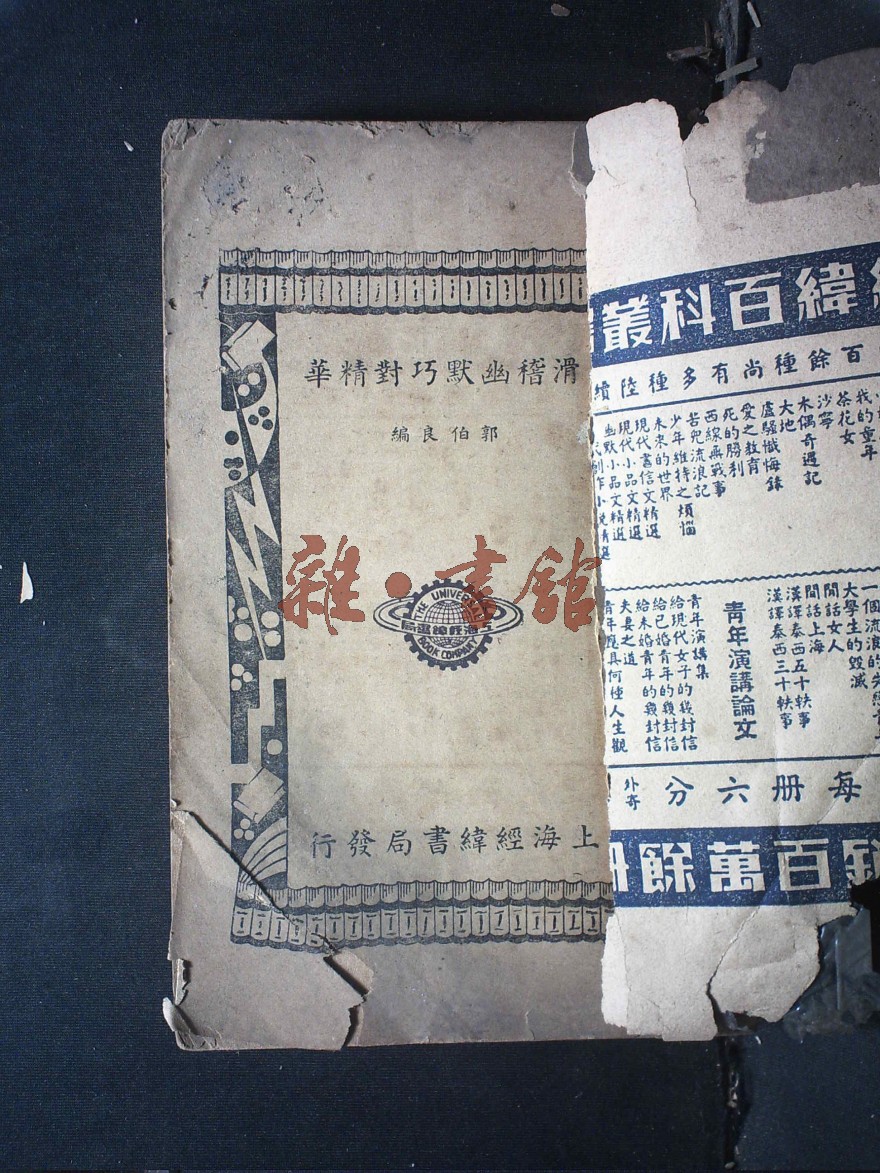 滑稽幽默巧對精華
郭伯良編
雜·書舘
THE UNIVERSAL
上海經緯書局
BOOK COMPANY
上海經緯書局發行
緯百科叢
百餘種尚有多種陸續
茶花女
沙寧
木偶奇遇記
大地
盧騷懺悔錄
愛之教育
死的勝利
西線無戰事
苦兒流浪記
少年維特之煩惱
未來的世界
現代書信文精選
現代小品文精選
幽默小品文精選
大學生的毀滅
閒話女人
閒話上海
漢譯泰西五十軼事
漢譯泰西三十軼事
青年演講論文
青年演講集
給現代女子的幾封信
給已婚青年的幾封信
給未婚青年的幾封信
夫妻之道
青年應具何種人生觀
每册六分
外寄
銷百萬餘册